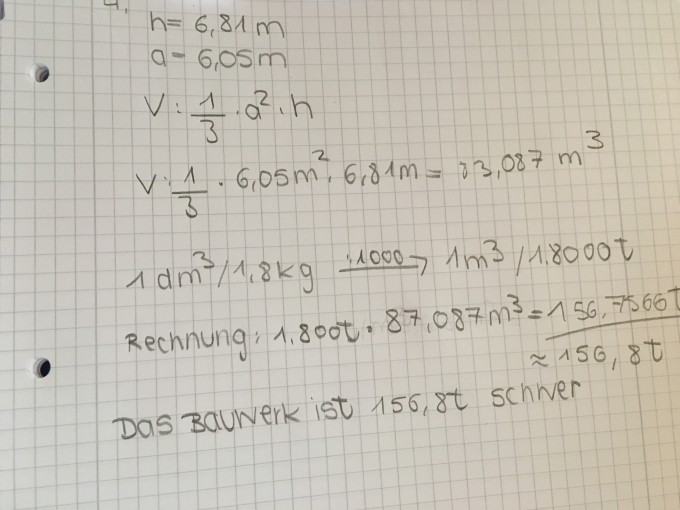 4.
h = 6,81 m
a = 6,05 m
V : 1/3 · a² · h
V : 1/3 · 6,05 m² · 6,81 m = 33,087 m³
1 dm³/1,8 kg :1000→ 1 m³/1,8000t
Rechnung: 1,800t · 87,087 m³ = 156,7566t
≈ 156,8t
Das Bauwerk ist 156,8t schwer